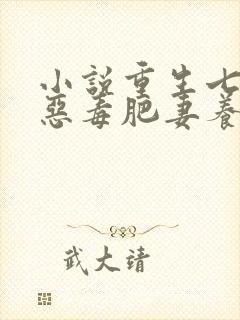 小說重生七
惡毒肥妻養
武大靖